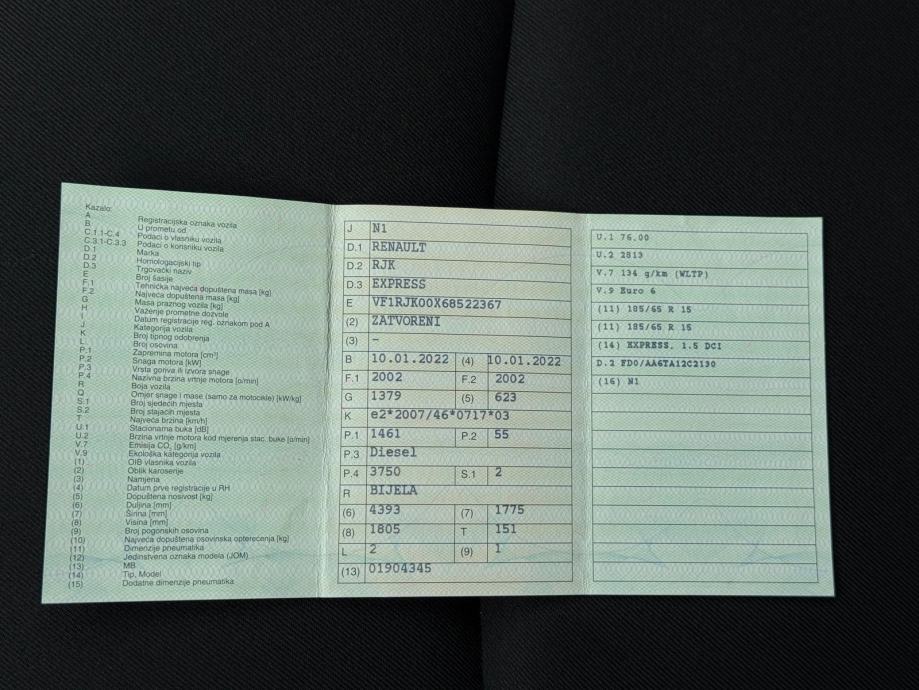 Kazalo:
A Registracijska oznaka vozila
B U prometu od
C.1.1-C.4 Podaci o vlasniku vozila
C.3.1-C.3.3 Podaci o korisniku vozila
D.1 Marka
D.2 Homologacijski tip
D.3 Trgovački naziv
E Broj šasije
F.1 Tehnička najveća dopuštena masa [kg]
F.2 Najveća dopuštena masa [kg]
G Masa praznog vozila [kg]
H Važenje prometne dozvole
I Datum registracije reg. oznakom pod A
J Kategorija vozila
K Broj tipnog odobrenja
L Broj osovina
P.1 Zapremina motora [cm³]
P.2 Snaga motora [kW]
P.3 Vrsta goriva ili izvora snage
P.4 Nazivna brzina vrtnje motora [o/min]
R Boja vozila
Q Omjer snage i mase (samo za motocikle) [kW/kg]
S.1 Broj sjedećih mjesta
S.2 Broj stajaćih mjesta
T Najveća brzina [km/h]
U.1 Stacionarna buka [dB]
U.2 Brzina vrtnje motora kod mjerenja stac. buke [o/min]
V.7 Emisija CO₂ [g/km]
V.9 Ekološka kategorija vozila
(1) OIB vlasnika vozila
(2) Oblik karoserije
(3) Namjena
(4) Datum prve registracije u RH
(5) Dopuštena nosivost [kg]
(6) Duljina [mm]
(7) Širina [mm]
(8) Visina [mm]
(9) Broj pogonskih osovina
(10) Najveća dopuštena osovinska opterećenja [kg]
(11) Dimenzije pneumatika
(12) Jedinstvena oznaka modela (JOM)
(13) MB
(14) Tip, Model
(15) Dodatne dimenzije pneumatika
J N1
D.1 RENAULT
D.2 RJK
D.3 EXPRESS
E VF1RJK00X68522367
(2) ZATVORENI
(3) –
B 10.01.2022 (4) 10.01.2022
F.1 2002 F.2 2002
G 1379 (5) 623
K e2*2007/46*0717*03
P.1 1461 P.2 55
P.3 Diesel
P.4 3750 S.1 2
R BIJELA
(6) 4393 (7) 1775
(8) 1805 T 151
L 2 (9) 1
(13) 01904345
U.1 76.00
U.2 2813
V.7 134 g/km (WLTP)
V.9 Euro 6
(11) 185/65 R 15
(11) 185/65 R 15
(14) EXPRESS, 1.5 DCI
D.2 FD0/AA6TA12C2130
(16) N1